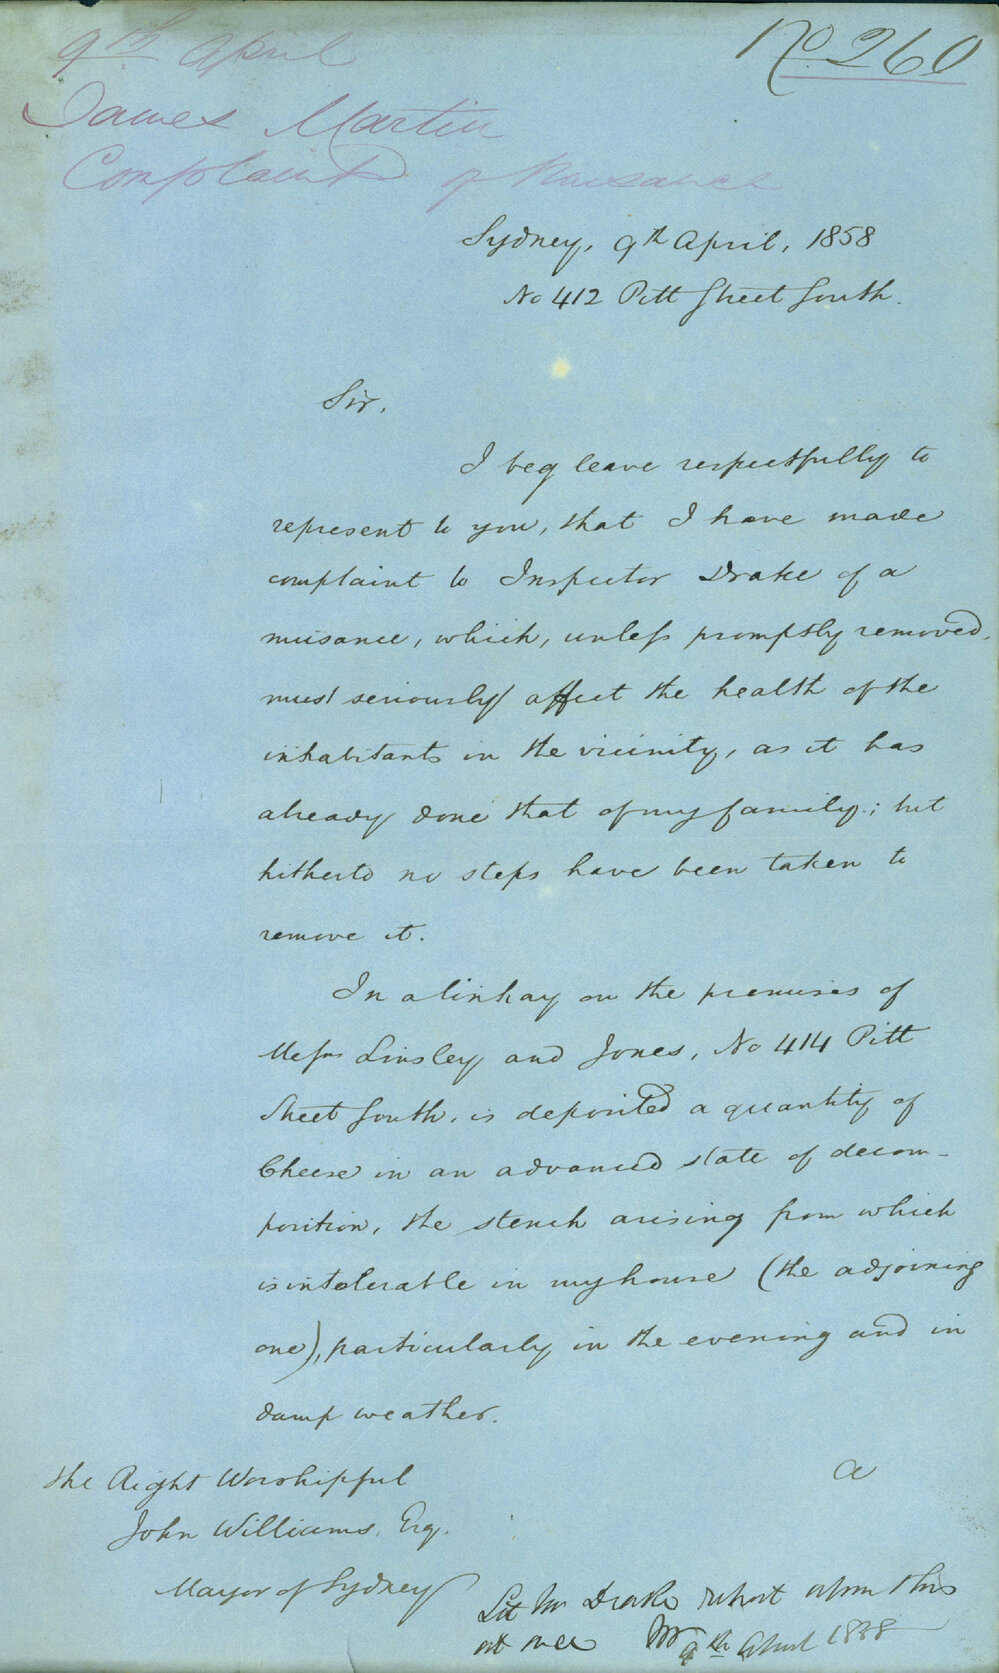 No. 260
9th April
James Martin
Complaint of Nuisance
Sydney, 9th April, 1858
No 412 Pitt Street South.
Sir,
I beg leave respectfully to
represent to you, that I have made
complaint to Inspector Drake of a
nuisance, which, unless promptly removed,
must seriously affect the health of the
inhabitants in the vicinity, as it has
already done that of my family; but
hitherto no steps have been taken to
remove it.
In a linhay on the premises of
Messrs Linsley and Jones, No 414 Pitt
Street South, is deposited a quantity of
Cheese in an advanced state of decom-
position, the stench arising from which
is intolerable in my house (the adjoining
one), particularly in the evening and in
damp weather.
a
The Right Worshipful
John Williams, Esq.
Mayor of Sydney
Let Mr Drake report upon this
at once 9th April 1858